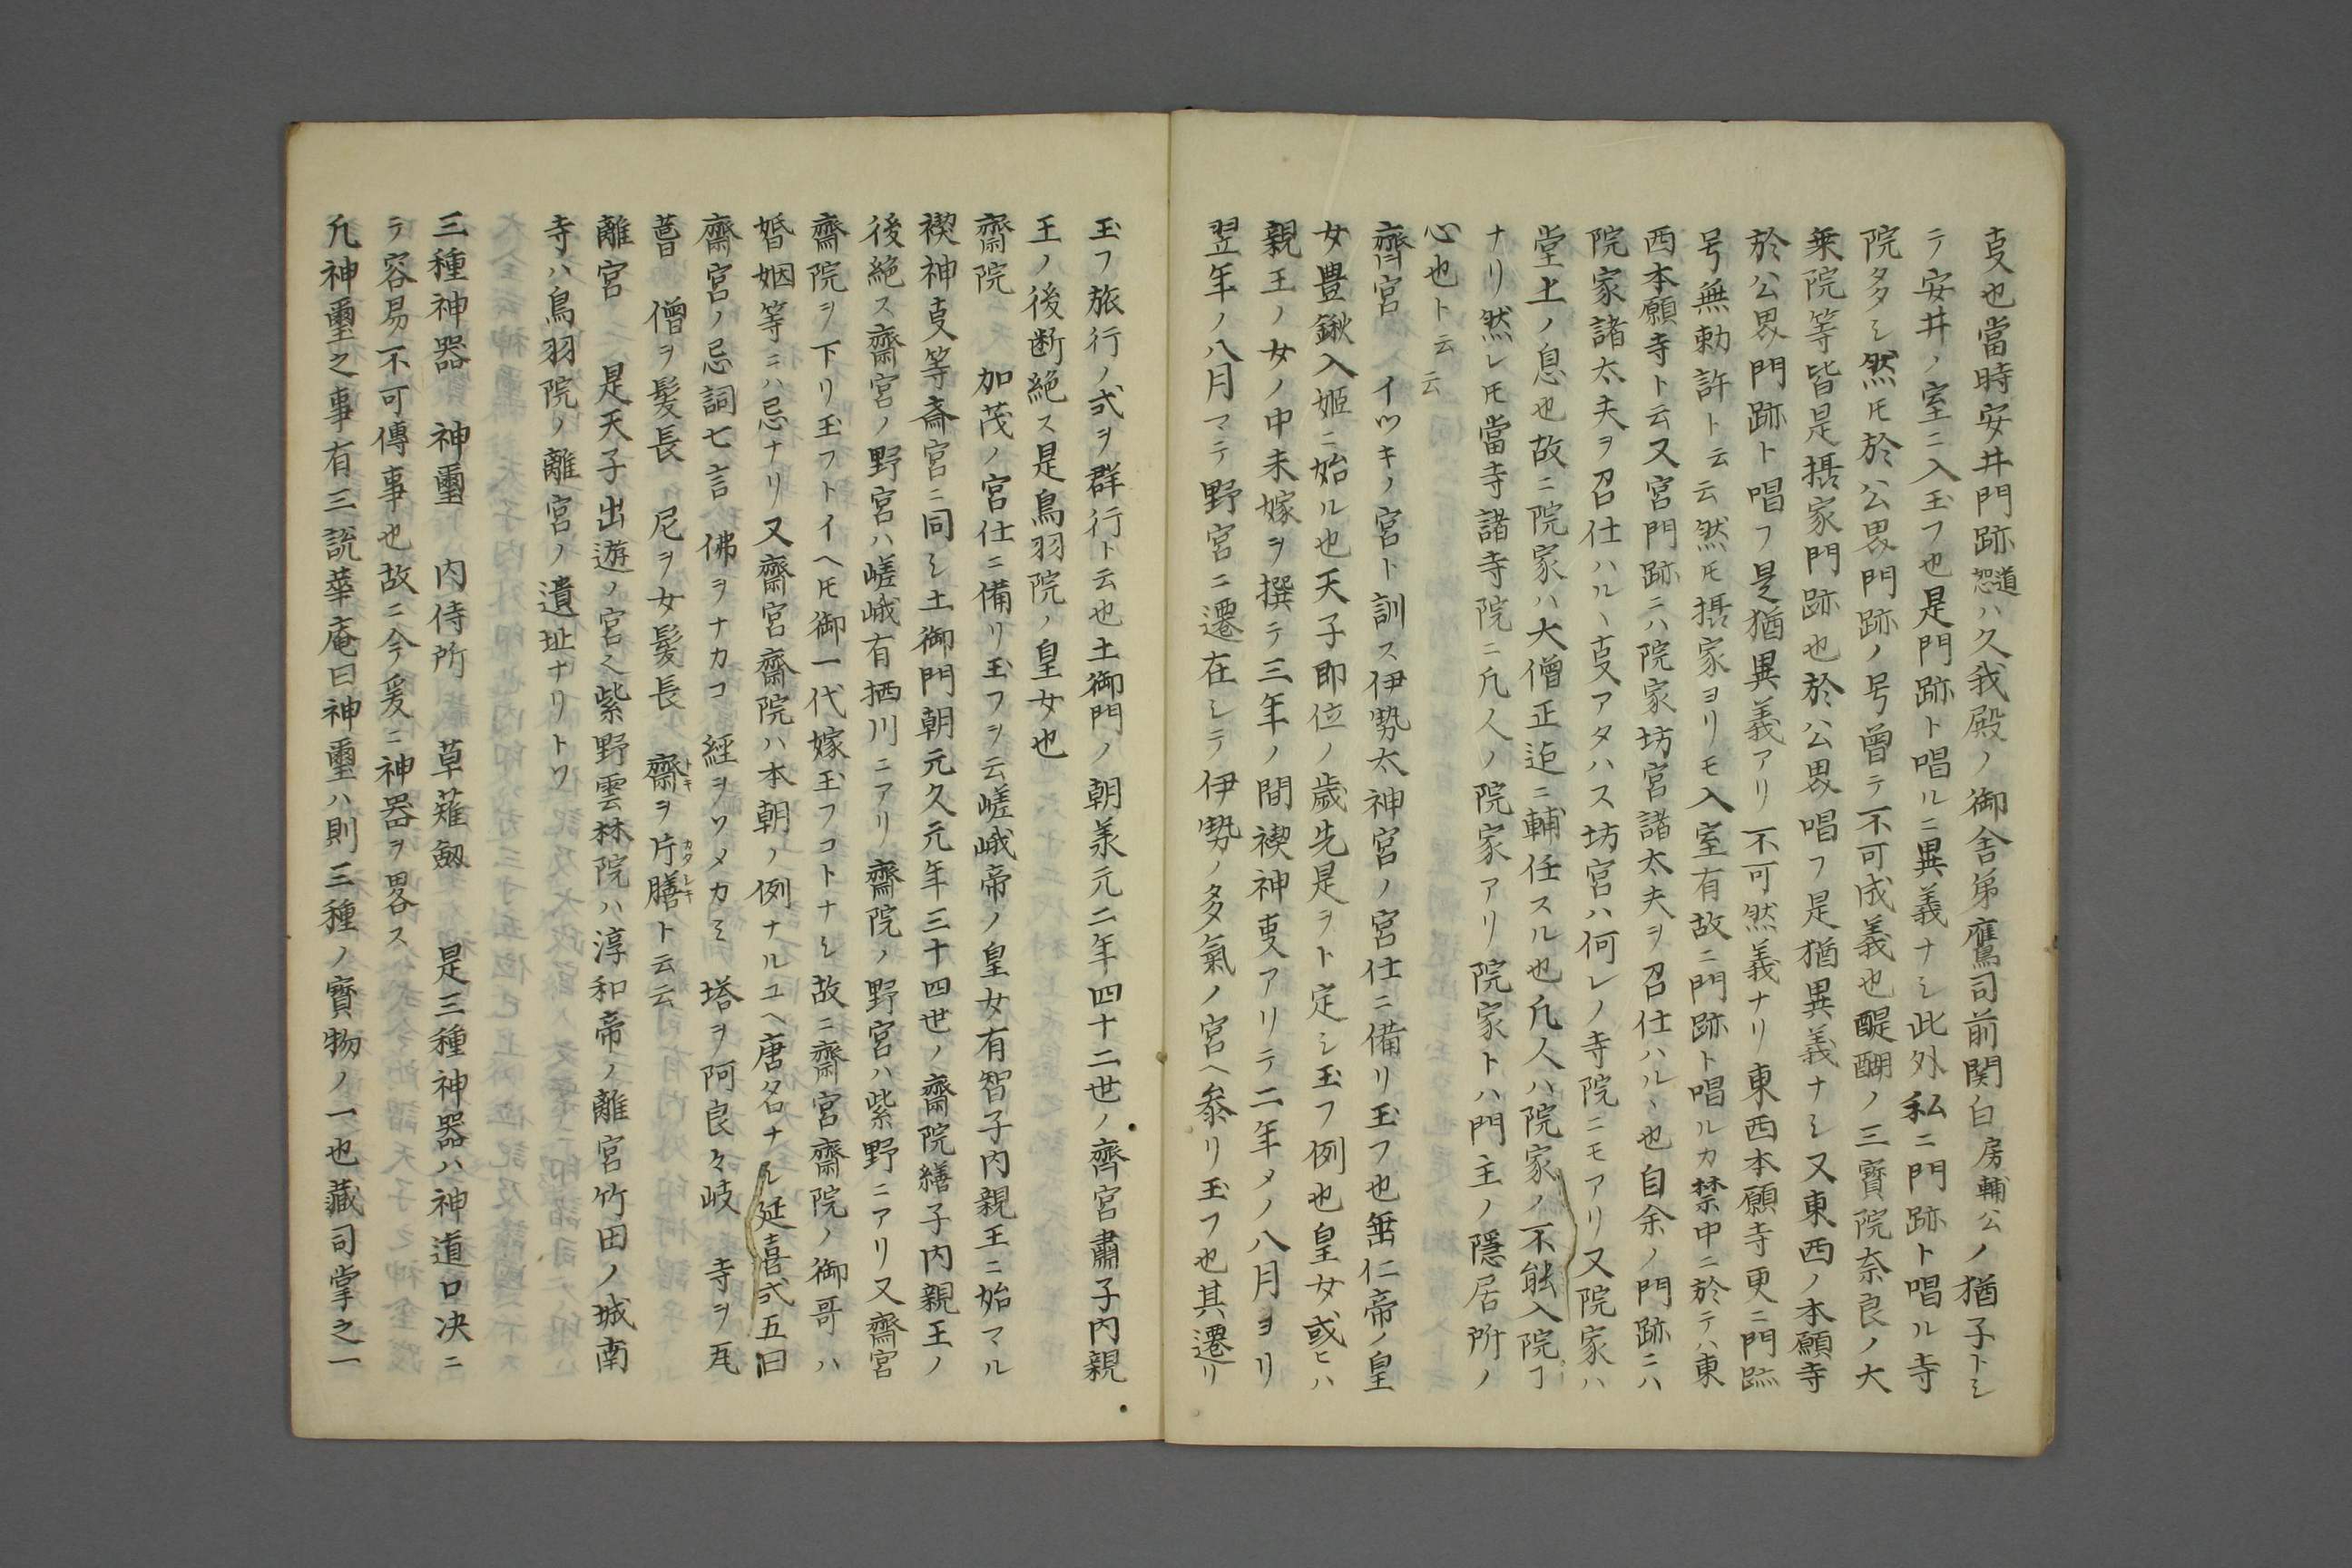 叓也當時安井門跡道恕ハ久我殿ノ御舎弟鷹司前関白房輔公ノ猶子トシ
テ安井ノ室ニ入玉フ也是門跡ト唱ルニ異義ナシ此外私ニ門跡ト唱ル寺
院多シ然𪜈於公畏門跡ノ号曽テ不可成義也醍醐ノ三寳院奈良ノ大
乗院等皆是摂家門跡也於公畏唱フ是猶異義ナシ又東西ノ本願寺
於公畏門跡ト唱フ是猶異義アリ不可然義ナリ東西本願寺更ニ門跡
号無勅許ト云云然𪜈摂家ヨリモ入室有故ニ門跡ト唱ルカ禁中ニ於テハ東
西本願寺ト云又宮門跡ニハ院家坊宮諸太夫ヲ召仕ハルヽ也自余ノ門跡ニハ
院家諸太夫ヲ召仕ハルヽ叓アタハス坊宮ハ何レノ寺院ニモアリ又院家ハ
堂上ノ息也故ニ院家ハ大僧正迠ニ輔任スル也凡人ハ院家ノ不能入院ヿ
ナリ然レ𪜈當寺諸寺院ニ凡人ノ院家アリ院家トハ門主ノ隠居所ノ
心也ト云云
齊宮　イツキノ宮ト訓ス伊勢太神宮ノ宮仕ニ備リ玉フ也垂仁帝ノ皇
女豊鍬入姫ニ始ル也天子即位ノ歳先是ヲト定シ玉フ例也皇女或ヒハ
親王ノ女ノ中未嫁ヲ撰テ三年ノ間禊神叓アリテ二年メノ八月ヨリ
翌年ノ八月マテ野宮ニ遷在シテ伊勢ノ多氣ノ宮ヘ叅リ玉フ也其遷リ
玉フ旅行ノ式ヲ群行ト云也土御門ノ朝羕元二年四十二世ノ齊宮肅子内親
王ノ後断絶ス是鳥羽院ノ皇女也
齋院　加茂ノ宮仕ニ備リ玉フヲ云嵯峨帝ノ皇女有智子内親王ニ始マル
禊神叓等斎宮ニ同シ土御門朝元久元年三十四世ノ齋院繕子内親王ノ
後絶ス齋宮ノ野宮ハ嵯峨有栖川ニアリ齋院ノ野宮ハ紫野ニアリ又齋宮
齋院ヲ下リ玉フトイヘ𪜈御一代嫁玉フコトナシ故ニ齋宮齋院ノ御哥ハ
婚姻等ニハ忌ナリ又齋宮齋院ハ本朝ノ例ナルユヘ唐名ナル延喜式五曰
齋宮ノ忌詞七言　佛ヲナカコ　經ヲソメカミ　塔ヲ阿良々岐　寺ヲ瓦
葺　僧ヲ髪長　尼ヲ女髪長　齋トキヲ片膳カタシキト云云
離宮　是天子出遊ノ宮也紫野雲林院ハ淳和帝ノ離宮竹田ノ城南
寺ハ鳥羽院ノ離宮ノ遺址ナリトソ
三種神器　神璽　内侍所　草薙劔　是三種神器ハ神道口决ニ
テ容易不可傳事也故ニ今爰ニ神器ヲ畧ス
凡神璽之事有三説華庵曰神璽ハ則三種ノ寳物ノ一也藏司掌之一